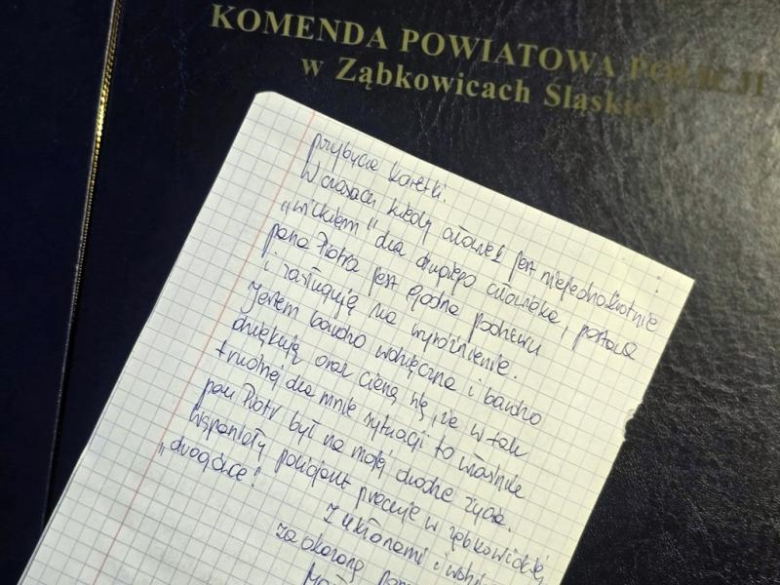 KOMENDA POWIATOWA POLICJI
w Ząbkowicach Śląskich
przybycia karetki.
W czasach kiedy człowiek jest niejednokrotnie
„wilkiem" dla drugiego człowieka, postawa
pana Piotra jest godna podziwu
i zasługuje na wyróżnienie.
Jestem bardzo wdzięczna i bardzo
dziękuję oraz cieszę się, że w tak
trudnej dla mnie sytuacji to właśnie
pan Piotr był na mojej drodze życia.
Wspaniały policjant pracuje w ząbkowickiej
„drogówce!
Z ukłonami i
za okazaną